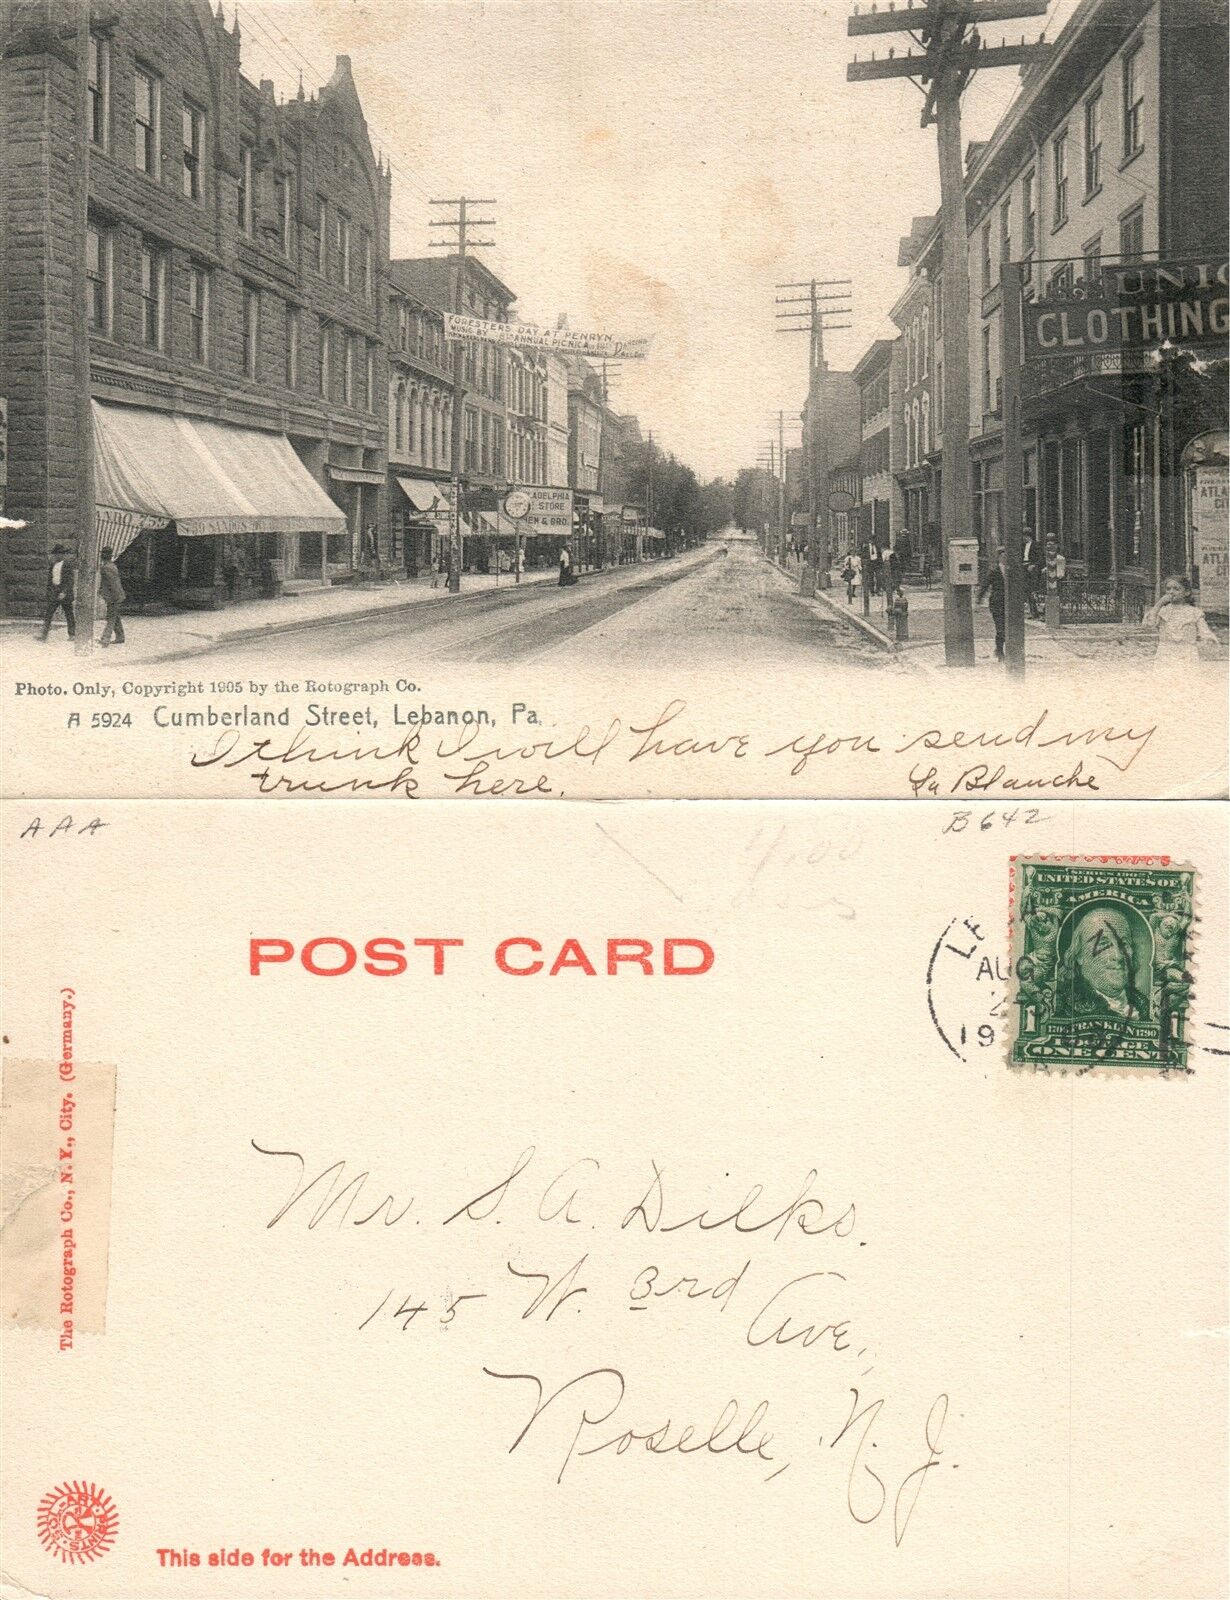 UNIO
CLOTHING
FORESTERS DAY AT PENRYN
MUSIC BY ANNUAL PICNIC DANCING
ADELPHIA
STORE
EN & BRO.
ATL
ATL
Photo. Only, Copyright 1905 by the Rotograph Co.
A 5924 Cumberland Street, Lebanon, Pa.
I think I will have you send my
trunk here. La Blanche
AAA
B642
SERIES 1902
UNITED STATES OF
AMERICA
POST CARD
LE
AUG
2
19
1706 FRANKLIN 1790
1 POSTAGE 1
ONE CENT
The Rotograph Co., N. Y., City. (Germany.)
Mr. S. A. Dilks.
145 W. 3rd Ave.,
Roselle, N. J.
SOL-ART PRINTS
This side for the Address.